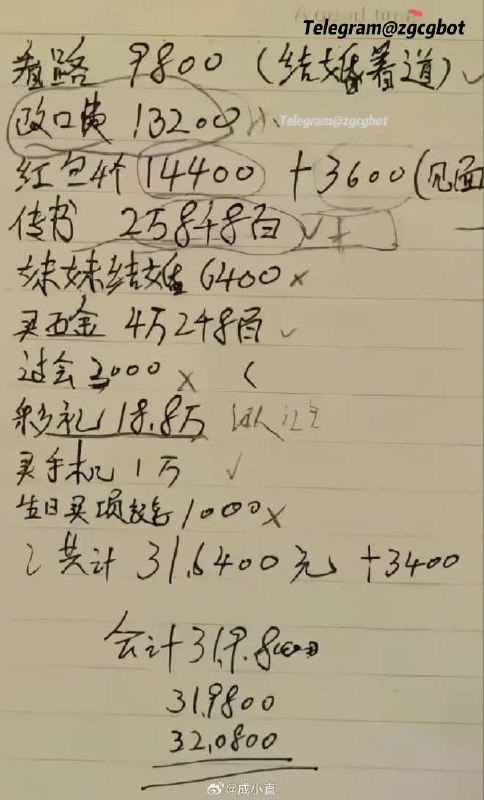 Telegram@zgcgbot
看路 9800 (结婚着道) ✓
改口费 13200
Telegram@zgcgbot
红包4个 14400 + 3600 (见面
传书 2万8千8百 ✓
妹妹结婚 6400 ×
买五金 4万2千8百 ✓
过会 2000 ×
彩礼 18.8万
买手机 1万 ✓
生日买项链 1000 ×
共计 31,6400元 +3400
会计 31,9.8
31,9800
32,0800
@成小直